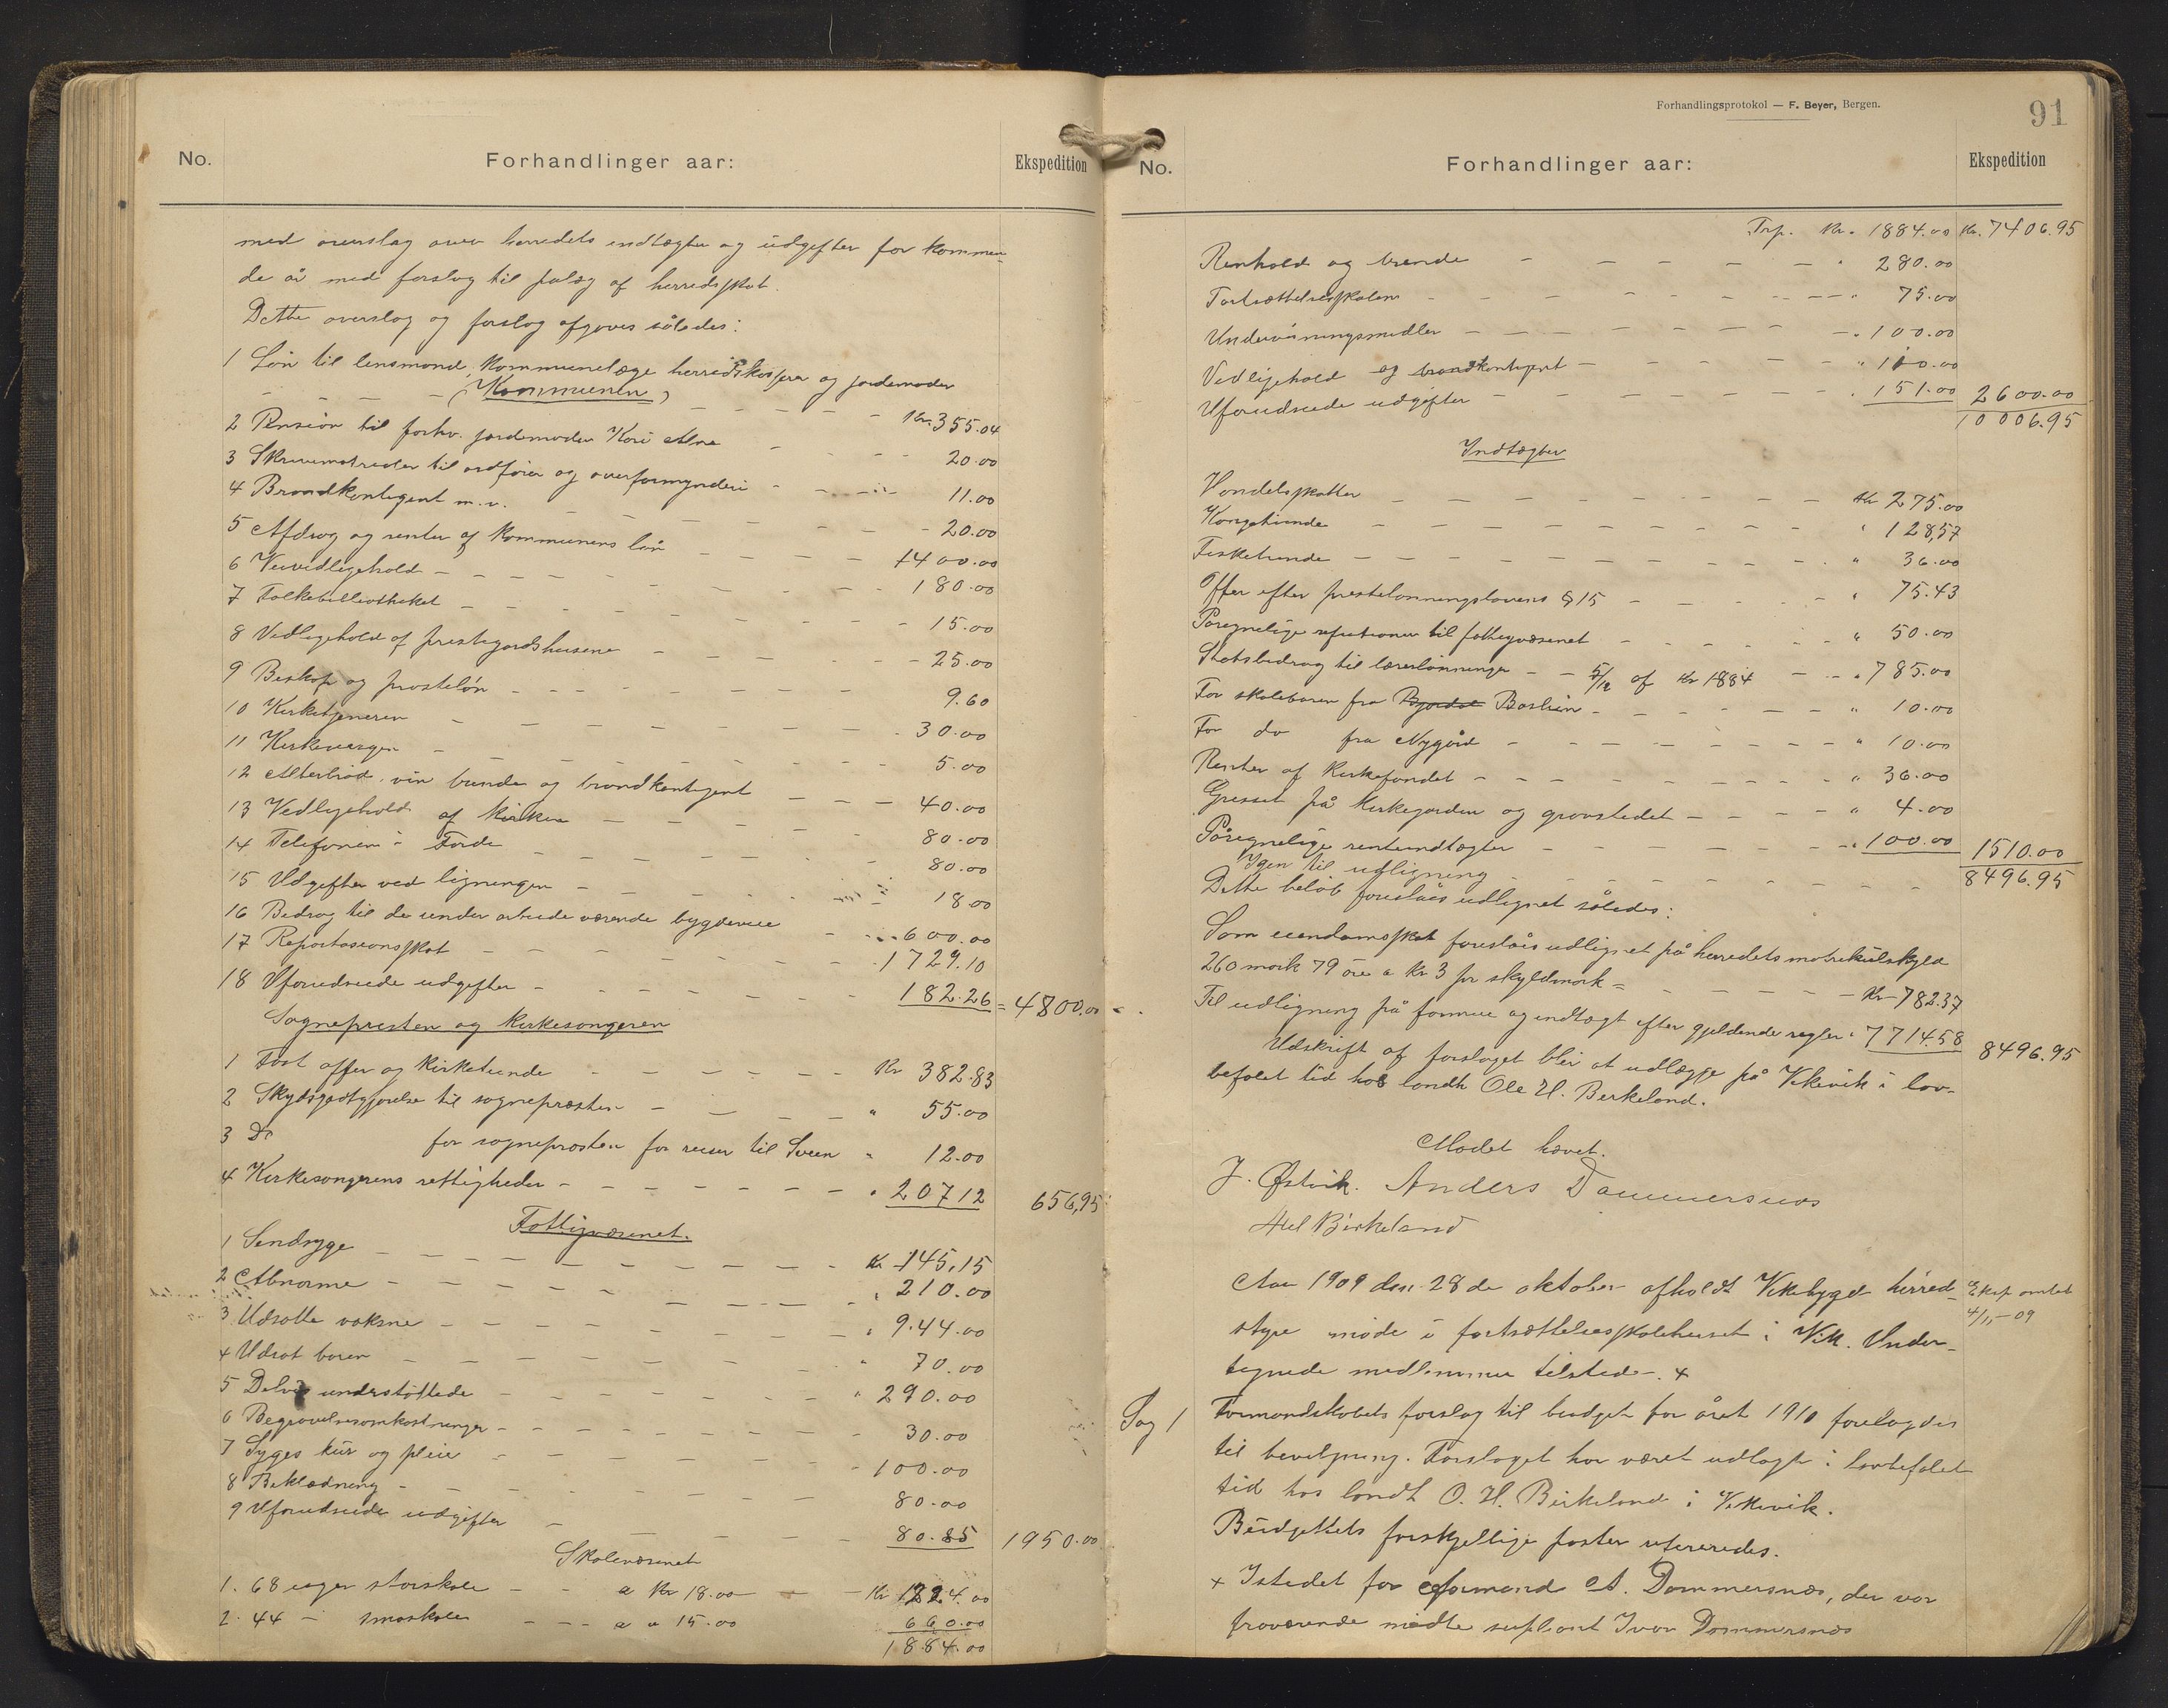 No. Forhandlinger aar: Ekspedition
med overslag over herredets indtægter og udgifter for kommen-
de år med forslag til pålæg af herredsskat.
Dette overslag og forslag afgaves således:
1 Løn til lensmand, kommunelæge herredskasserer og jordemoder
(Kommunen) Kr. 355.04
2 Pension til forhv. jordemoder Kari Alne 20.00
3 Skrivematrialer til ordfører og overformynderi 11.00
4 Brandkontigent m.v. 20.00
5 Afdrag og renter af kommunens lån 1400.00
6 Veivedligehold 180.00
7 Folkebibliotheket 15.00
8 Vedligehold af prestegårdshusene 25.00
9 Biskop og prosteløn 9.60
10 Kirketjeneren 30.00
11 Kirkevergen 5.00
12 Alterbrød, vin brende og brandkontigent 40.00
13 Vedligehold af kirken 80.00
14 Telefonen i Førde 80.00
15 Udgifter ved ligningen 18.00
16 Bidrag til de under arbeide værende bygdeveie 600.00
17 Repartisionsskat 1729.10
18 Uforudseede udgifter 182.26 = 4800.00
Sognepresten og kirkesangeren
1 Fast offer og kirketiende Kr 382.83
2 Skydsgodtgjørelse til sognepresten " 55.00
3 Do for sognepresten for reiser til Sveen " 12.00
4 Kirkesangerens rettigheder " 207.12 656,95
Fattigvæsenet.
1 Sindsyge Kr 145,15
2 Abnorme " 210.00
3 Udsatte voksne " 944.00
4 Udsat børn " 70.00
5 Delvis understøttede " 290.00
6 Begravelsesomkostninger 30.00
7 Syges kur og pleie 100.00
8 Beklædning 80.00
9 Uforudseede udgifter 80.85 1950.00
Skolevæsenet
1. 68 uger storskole a Kr 18.00 Kr 1224.00
2. 44 - småskolen a " 15.00 660.00
1884.00
Forhandlingsprotokol — F. Beyer, Bergen.
91
No. Forhandlinger aar: Ekspedition
Trp. Kr. 1884.00 Kr. 7406.95
Renhold og brende " 280.00
Fortsættelsesskolen " 75.00
Undervisningsmidler " 100.00
Vedligehold og brandkontigent " 110.00
Uforudseede udgifter " 151.00 2600.00
10006.95
Indtægter
Handelsskatter Kr 275.00
Kongetiende " 128,57
Fisketiende " 36.00
Offer efter prestelønningslovens § 15 " 75.43
Påregnelige refusioner til fattigvæsenet " 50.00
Statsbidrag til lærerlønninger 5/12 af Kr 1884 " 785.00
For skolebøren fra Bjordal Baslien " 10.00
For do fra Nygård " 10.00
Renter af kirkefondet " 36.00
Gresset på kirkegården og gravstedet " 4.00
Påregnelige renteindtægter " 100.00 1510.00
Igen til udligning 8496.95
Dette beløb foreslåes udlignet således:
Som eiendomsskat foreslåes udlignet på herredets matrikulskyld
260 mark 79 øre a Kr 3 pr skyldmark = Kr 782.37
Til udligning på formue og indtægt efter gjeldende regler " 7714.58 8496.95
Udskrift af forslaget blir at udlægge på Vikevik i lov-
befalet tid hos landh Ole H. Berkeland.
Mødet hævet.
J. Østvik. Anders Dommersnes
H H Birkeland
Aar 1909 den 28de oktober afholdt Vikebygd herred- Eksp amtet
styre møde i fortsættelsesskolehuset i Vik. Under- 4/11-09
tegnede medlemmer tilstede. +
Sag 1 Formandskabets forslag til budget for året 1910 forelagdes
til bevilgning. Forslaget har været udlagt i lovbefalet
tid hos landh O. H. Birkeland i Vikevik.
Budgettets forskjellige poster refereredes.
+ Istedet for formand A. Dommersnes, der var
fraværende mødte suppleant Ivar Dommersnes